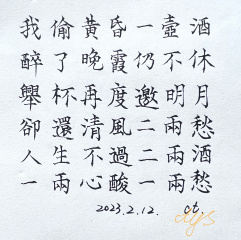 我偷黃昏一壺酒
醉了晚霞仍不休
舉杯再度邀明月
卻還清風二兩愁
人生不過二兩酒
一兩心酸一兩愁
2023.2.12. ct.
djs